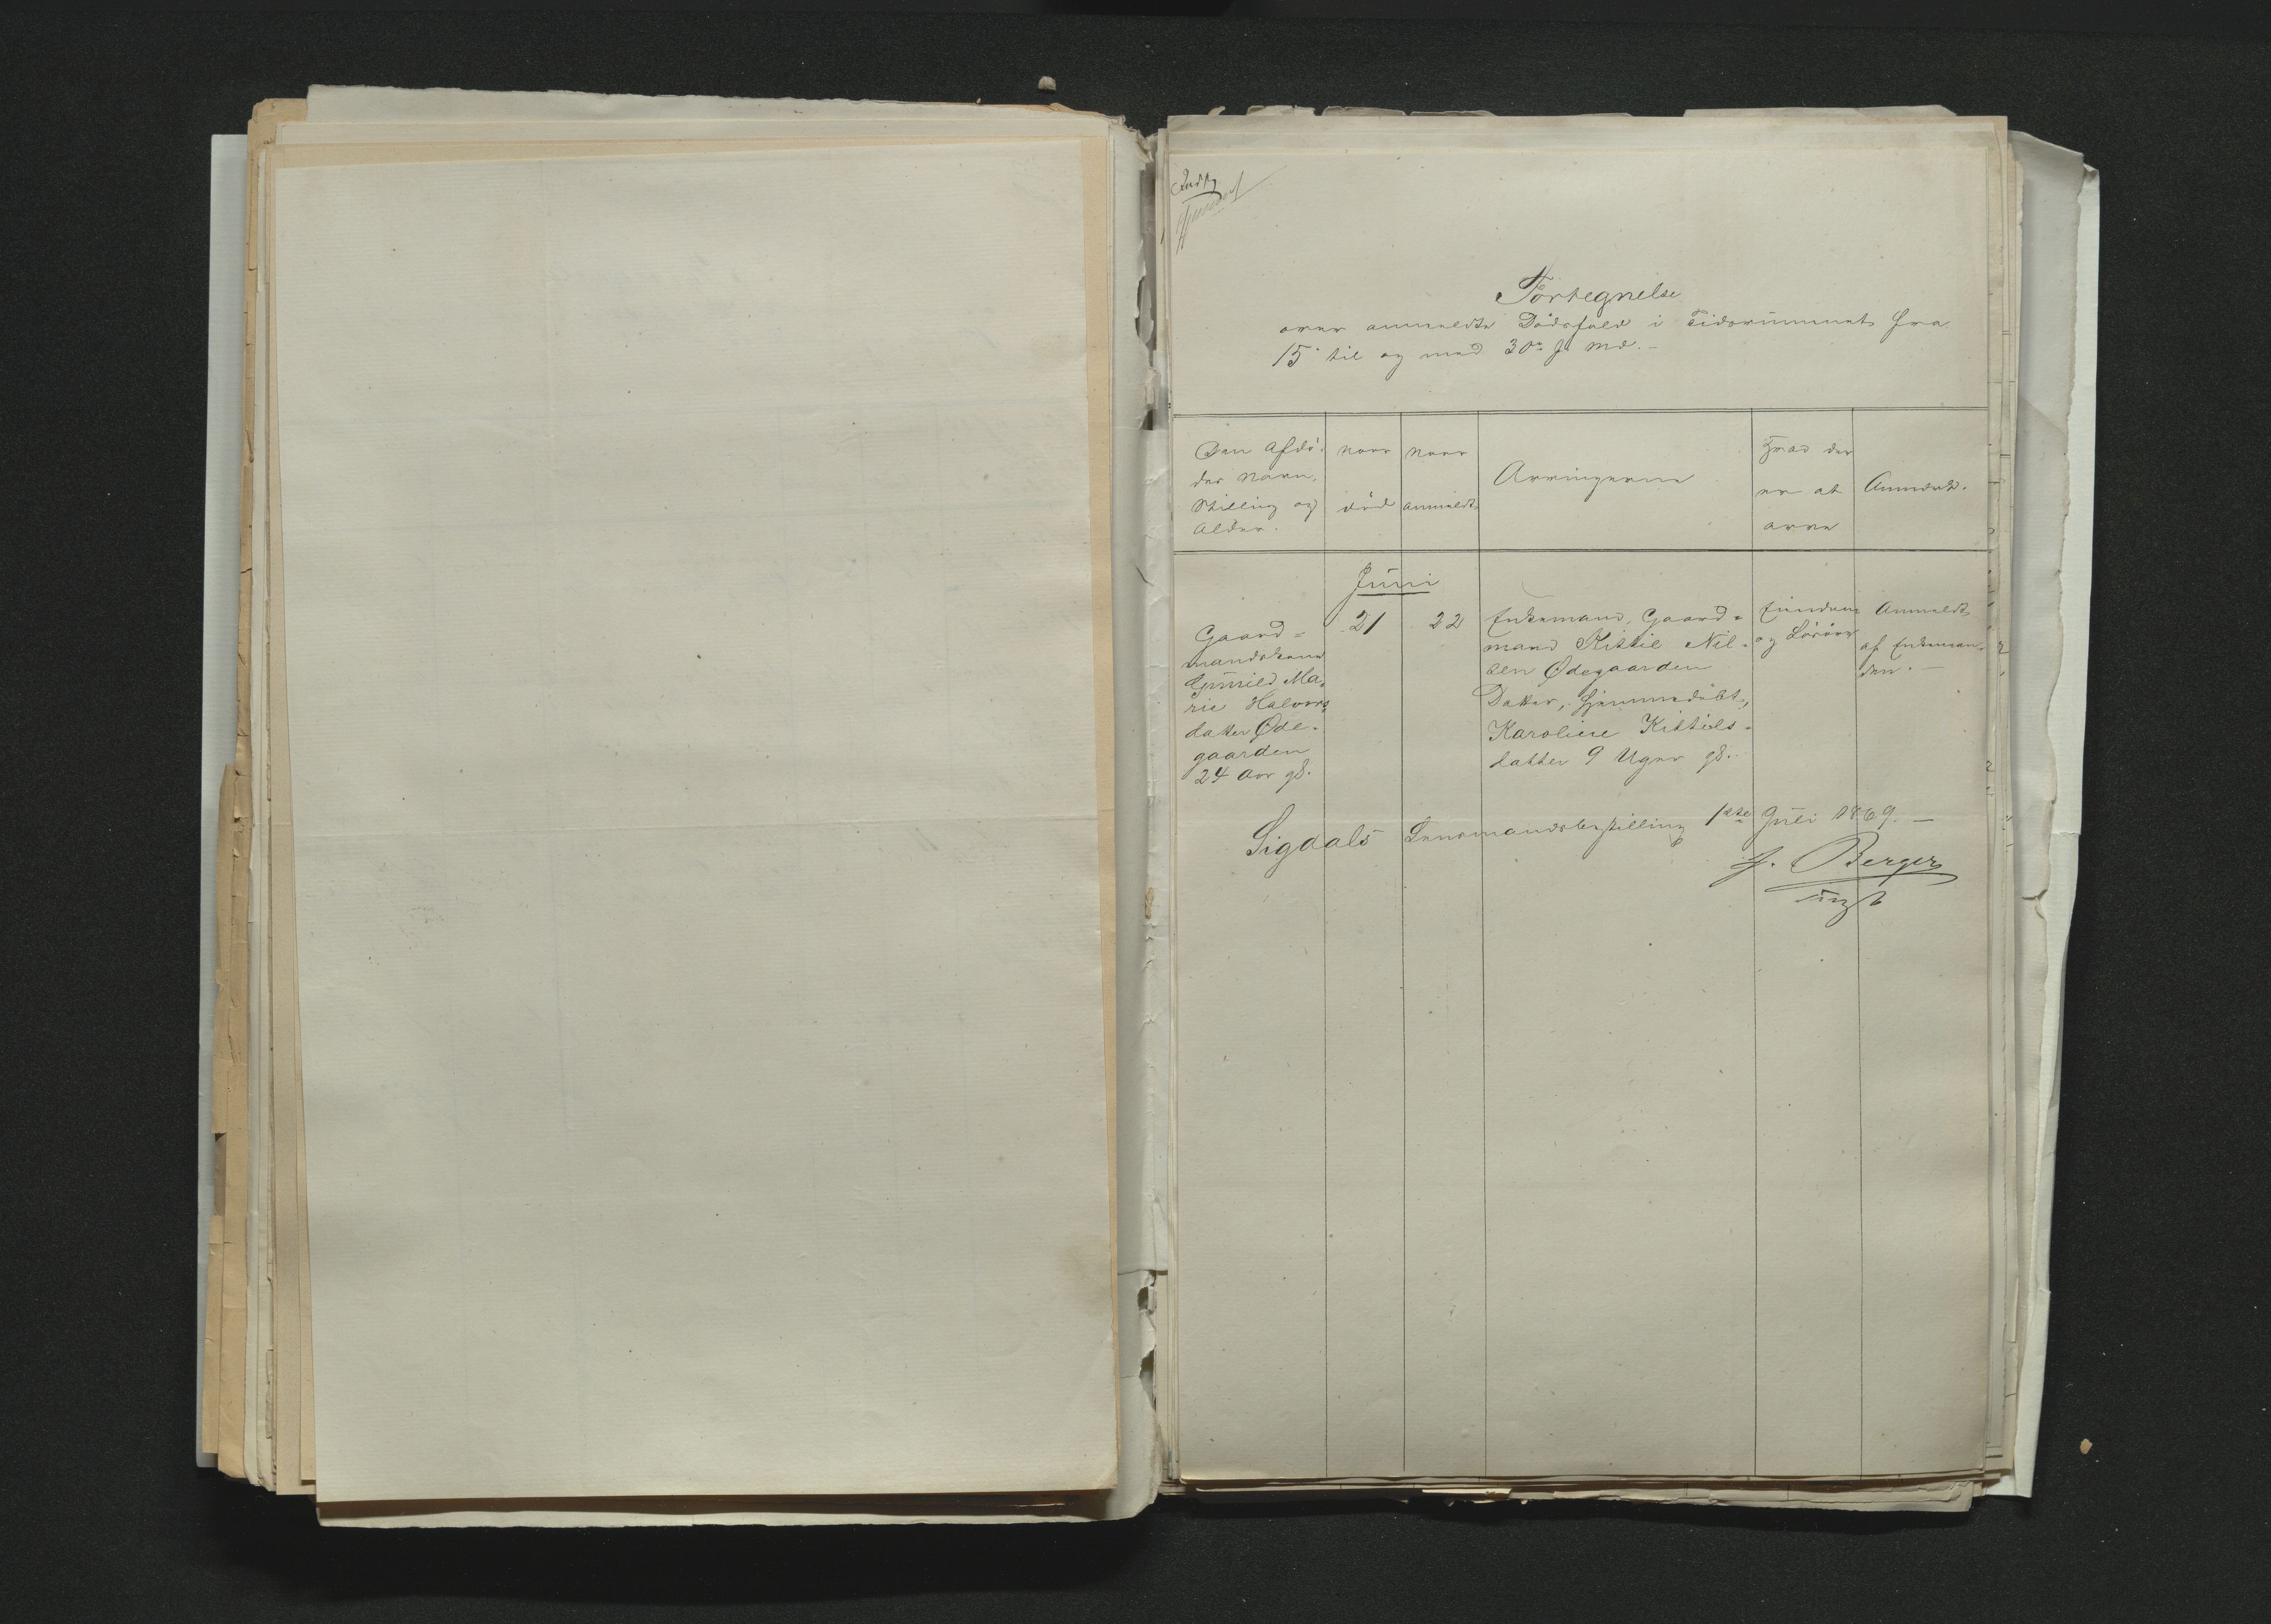 Indf.
Fortegnelse
over anmeldte Dødsfald i Tidsrummet fra
15 til og med 30te f. Md. –
Den Afdø-
des Navn,
Stilling og
Alder.
Naar
død
Naar
anmeldt
Arvingerne
Hvad der
er at
arve
Anmærk.
Juni
Gaard-
mandskone
Gunild Ma-
rie Halvors-
datter Øde-
gaarden
24 Aar gl.
21
22
Enkemand, Gaard-
mand Kittil Nil-
sen Ødegaarden
Datter, hjemmedøbt,
Karoline Kittils-
datter 9 Uger gl.
Eiendom
og Løsøre
Anmeldt
af Enkeman-
den. –
Sigdals Lensmandsbestilling 1ste Juli 1869. –
Berger